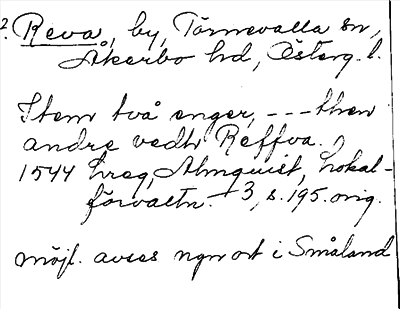 2. Reva, by, Törnevalla sn,
Åkerbo hd, Österg. l.
Item två enger, --- then
andre vedh Reffva.
1544 hreg, Almquist, Lokal-
förvaltn. 3, s. 195. orig.
möjl. avses ngn ort i Småland